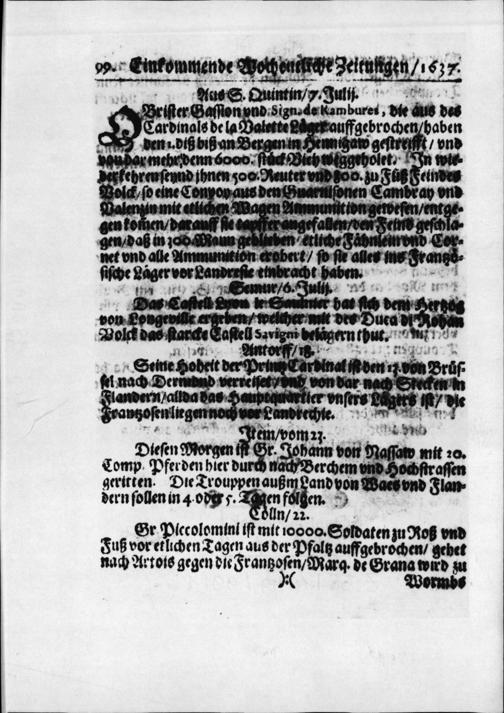 99. Einkommende Wochentliche Zeitungen/1637.
Aus S. Quintin/7. Julij.
OBrister Gassion vnd Sign. de Rambures, die aus des
Cardinals de la Valette Läger auffgebrochen/haben
den 1. diß biß an Bergen in Hennigaw gestreifft/vnd
von dar mehr denn 6000. stück Vieh weggeholet. In wie-
derkehren seynd ihnen 500. Reuter vnd 300. zu Fuß Feindes
Volck/so eine Convoy aus den Guarnisonen Cambray vnd
Valenzin mit etlichen Wagen Ammunition gewesen/entge-
gen komen/darauff sie tapffer angefallen/den Feind geschla-
gen/daß in 300. Mann geblieben/etliche Fähnlein vnd Cor-
net vnd alle Ammunition erobert/so sie alles ins Frantzö-
sische Läger vor Landresie einbracht haben.
Semur/6. Julij.
Das Castell Lyon le Saulnier hat sich dem Hertzog
von Longeville ergeben/welcher mit des Duca di Rohan
Volck das starcke Castell Savigni belägern thut.
Antorff/18.
Seine Hoheit der Printz Cardinal ist den 17. von Brüs-
sel nach Dermund verreiset/vnd von dar nach Stecken in
Flandern/allda das Hauptquartier vnsers Lägers ist/die
Frantzosen liegen noch vor Landrechie.
Item/vom 23.
Diesen Morgen ist Gr. Johann von Nassaw mit 20.
Comp. Pferden hier durch nach Berchem vnd Hochstrassen
geritten. Die Trouppen außm Land von Waes vnd Flan-
dern sollen in 4 oder 5. Tagen folgen.
Cölln/22.
Gr Piccolomini ist mit 10000. Soldaten zu Roß vnd
Fuß vor etlichen Tagen aus der Pfaltz auffgebrochen/gehet
nach Artois gegen die Frantzosen/Marq. de Grana wird zu
):(
Wormbs